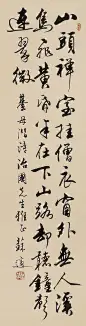 山頭禪室挂僧衣窗外無人溪
鳥飛黃昏半在下山路却聽鐘聲
連翠微 綦毋潛詩治國先生雅正 蘇適